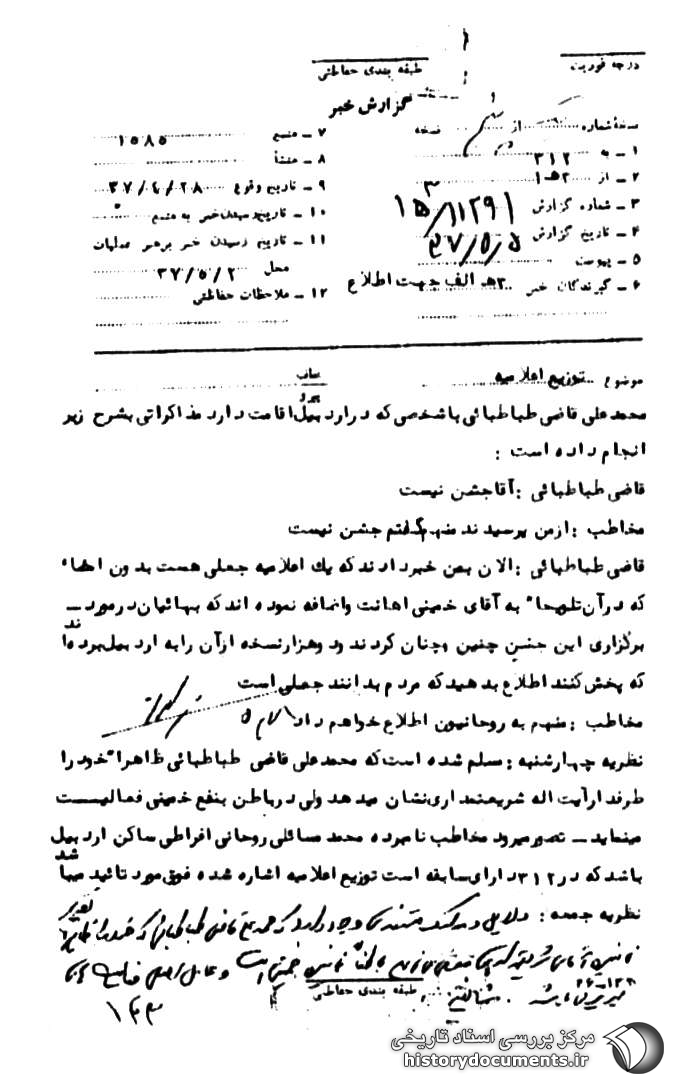 درجه فوریت
طبقه بندی حفاظتی
گزارش خبر
نسخهٔ شماره از نسخه
۱ ــ به ۳۱۲
۲ ــ از ۱ﻫ۳
۳ ــ شماره گزارش ۱۵۳/۱۱۲۹۱
۴ ــ تاریخ گزارش ۳۷/۵/۵
۵ ــ پیوست
۶ ــ گیرندگان خبر ۳هـ الف جهت اطلاع
۷ ــ منبع ۱۵۸۵
۸ ــ منشأ
۹ ــ تاریخ وقوع ۳۷/۴/۲۸
۱۰ ــ تاریخ رسیدن خبر به منبع
۱۱ ــ تاریخ رسیدن خبر برهبر عملیات
محل ۳۷/۵/۲
۱۲ ــ ملاحظات حفاظتی
موضوع توزیع اعلامیه
سابقه
پیرو
محمدعلی قاضی طباطبائی باشخصی که دراردبیل اقامت دارد مذاکراتی بشرح زیر
انجام داده است :
قاضی طباطبائی : آقاجشن نیست
مخاطب : ازمن پرسیدند منهم گفتم جشن نیست
قاضی طباطبائی : الان بمن خبردادند که یک اعلامیه جعلی هست بدون امضاء
که درآن تلویحا" به آقای خمینی اهانت واضافه نموده اند که بهائیان درمورد ــ
برگزاری این جشن چنین وچنان کردند ودوهزارنسخه ازآن رابه اردبیل برده اند
که پخش کنند اطلاع بدهید که مردم بدانند جعلی است
مخاطب : منهم به روحانیون اطلاع خواهم داد
نظریه چهارشنبه : مسلم شده است که محمدعلی قاضی طباطبائی ظاهرا" خود را
طرفدار آیت اله شریعتمداری نشان میدهد ولی درباطن بنفع خمینی فعالیت
مینماید ــ تصورمیرود مخاطب نامبرده محمد مسائلی روحانی افراطی ساکن اردبیل
باشد که در ۳۱۲ دارای سابقه است توزیع اعلامیه اشاره شده فوق مورد تائید میباشد
نظریه جمعه : دلایل و مستندی وجود دارد که محمدعلی قاضی طباطبائی که
خمینی است
طبقه بندی حفاظتی
۱۶۳
مرکز بررسی اسناد تاریخی
historydocuments.ir